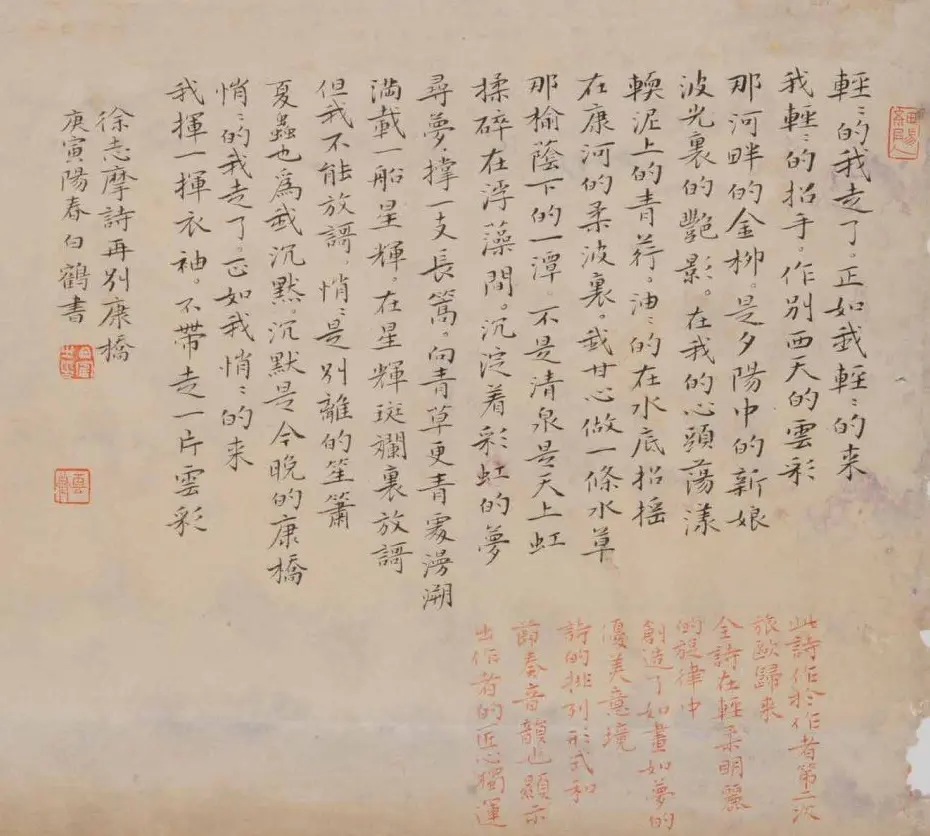 輕〻的我走了。正如我輕〻的来
我輕〻的招手。作別西天的雲彩
那河畔的金柳。是夕陽中的新娘
波光裏的艷影。在我的心頭蕩漾
輭泥上的青荇。油〻的在水底招摇
在康河的柔波裏。我甘心做一條水草
那榆蔭下的一潭。不是清泉是天上虹
揉碎在浮藻間。沉淀着彩虹的夢
尋夢，撑一支長篙。向青草更青處漫溯
滿載一船星輝。在星輝斑斕裏放謌
但我不能放謌。悄〻是別離的笙簫
夏蟲也爲我沉默。沉默是今晚的康橋
悄〻的我走了。正如我悄〻的来
我揮一揮衣袖。不帶走一片雲彩
徐志摩詩再別康橋
庚寅陽春白鶴書
此詩作於作者第二次
旅歐歸来
全詩在輕柔明麗
的旋律中
創造了如畫如夢的
優美意境
詩的排列形式和
節奏音韻也顯示
出作者的匠心獨運